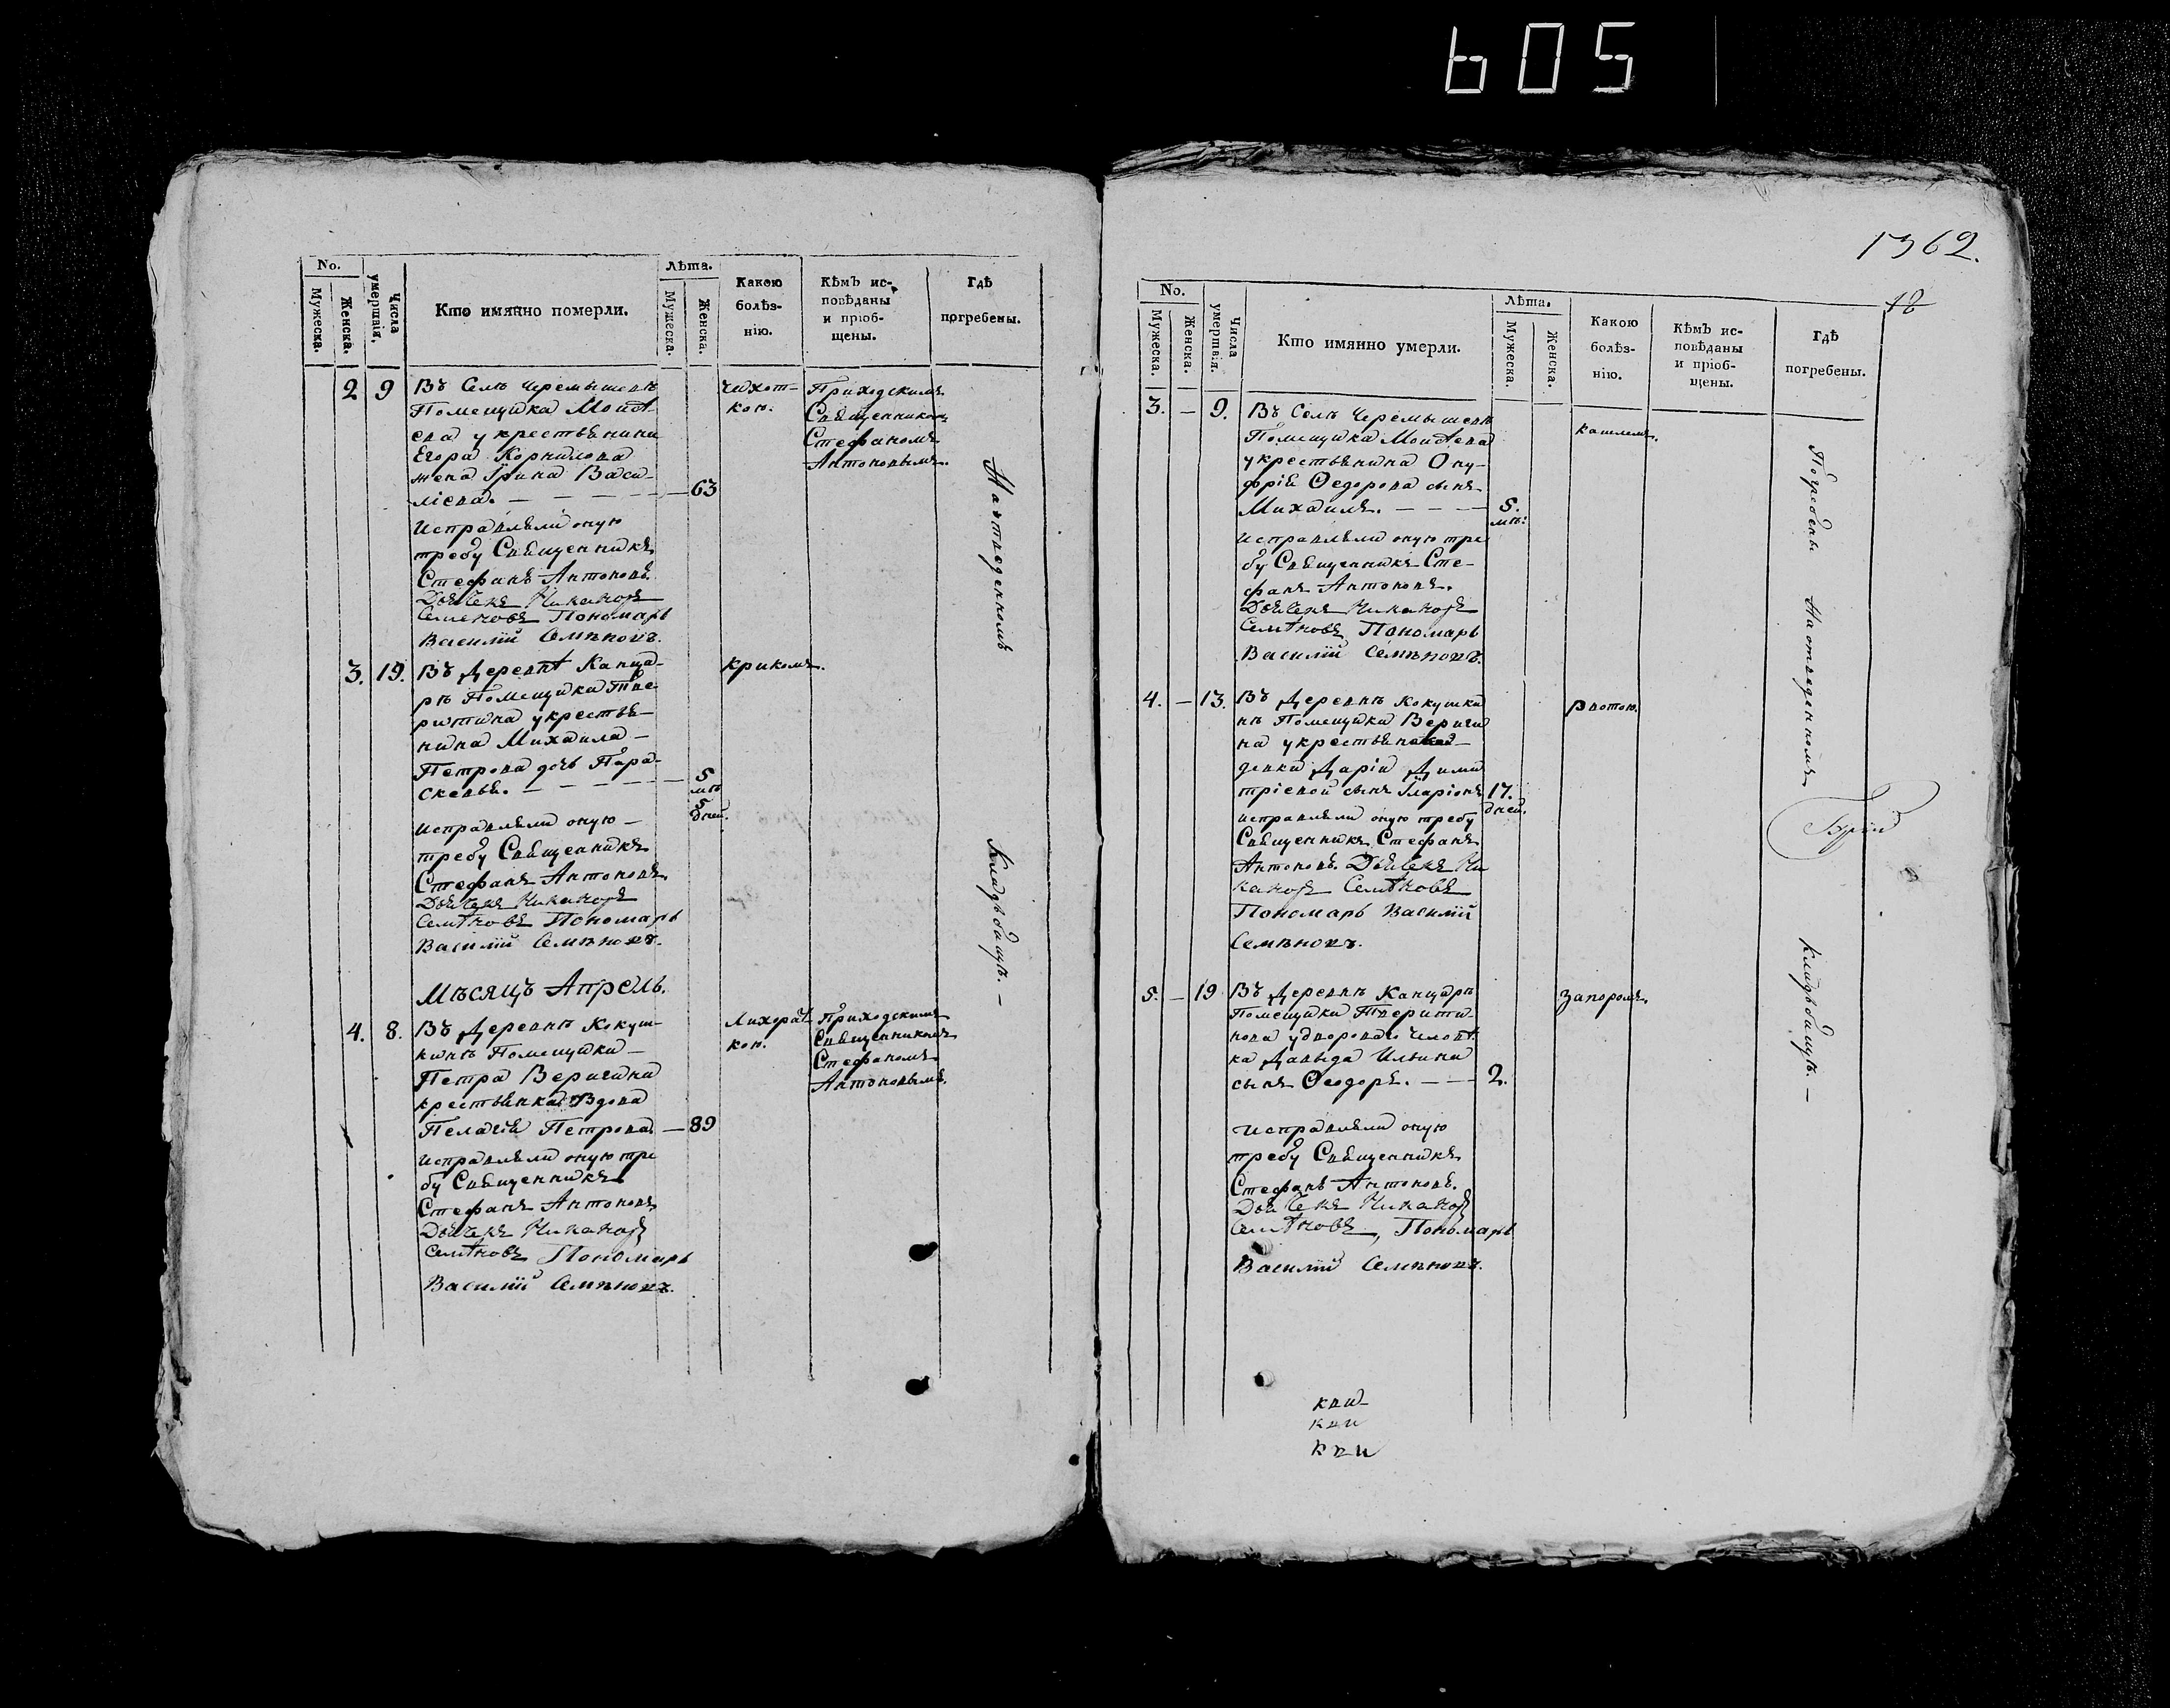 605
No.
Мужеска.
Женска.
Числа умертвія.
Кто имянно померли.
Лѣта.
Мужеска.
Женска.
Какою болѣз-
нію.
Кѣмъ ис-
повѣданы
и пріоб-
щены.
Гдѣ
погребены.
2 9 Въ Селѣ Черемышевѣ
Помещика Моисѣ-
ева у крестьянина
Егора Корнилова
жена Ірина Васи-
ліева. — 63
Исправляли оную
требу Священникъ
Стефанъ Антоновъ.
Дьячекъ Никаноръ
Семеновъ Пономарь
Василій Семѣновъ.
чихот-
кою.
Приходскимъ
Священникомъ
Стефаномъ
Антоновымъ.
3. 19. Въ Деревнѣ
Помещика
у крестья-
нина Михаила
Петрова дочь Пара-
скевья. — 5 мѣ 5 дней.
исправляли оную
требу Священникъ
Стефанъ Антоновъ.
Дьячекъ Никаноръ
Семѣновъ Пономарь
Василій Семѣновъ.
крикомъ.
Мѣсяцъ Апрель.
4. 8. Въ Деревнѣ Кокуш-
кинѣ Помещика
Петра Веригина
крестьянка Вдова
Пелагія Петрова — 89
исправляли оную тре
бу Священникъ
Стефанъ Антоновъ
Дьячекъ Никаноръ
Семѣновъ Пономарь
Василій Семѣновъ.
Лихорат
кою.
Приходскимъ
Священникомъ
Стефаномъ
Антоновымъ.
На отведенномъ Кладьбищѣ. —
1362.
18
No.
Мужеска.
Женска.
Числа умертвія.
Кто имянно умерли.
Лѣта.
Мужеска.
Женска.
Какою
болѣз-
нію.
Кѣмъ ис-
повѣданы
и пріоб-
щены.
Гдѣ
погребены.
3. — 9. Въ Селѣ Черемышевѣ
Помещика Моисѣева
у крестьянина Ону-
фрія Федорова сынъ
Михаилъ. — 5. мѣ:
исправляли оную тре
бу Священникъ Сте-
фанъ Антоновъ.
Дьячекъ Никаноръ
Семѣновъ Пономарь
Василій Семѣновъ.
кашлемъ.
4. — 13. Въ Деревнѣ Кокушки
нѣ Помещика Вериги
на у крестьянской
девки Даріи Дими
тріевой сынъ Іларіонъ 17. дней.
исправляли оную требу
Священникъ Стефанъ
Антоновъ. Дьячекъ Ни
каноръ Семѣновъ
Пономарь Василій
Семѣновъ.
рвотою.
5. — 19 Въ Деревнѣ
Помещика Тверити-
нова у двороваго человѣ
ка Давыда Ильина
сынъ Феодоръ. — 2.
исправляли оную
требу Священникъ
Стефанъ Антоновъ.
Дьячекъ Никаноръ
Семѣновъ, Пономарь
Василій Семѣновъ.
запоромъ.
Погребены На отведенномъ Кладьбищѣ. —